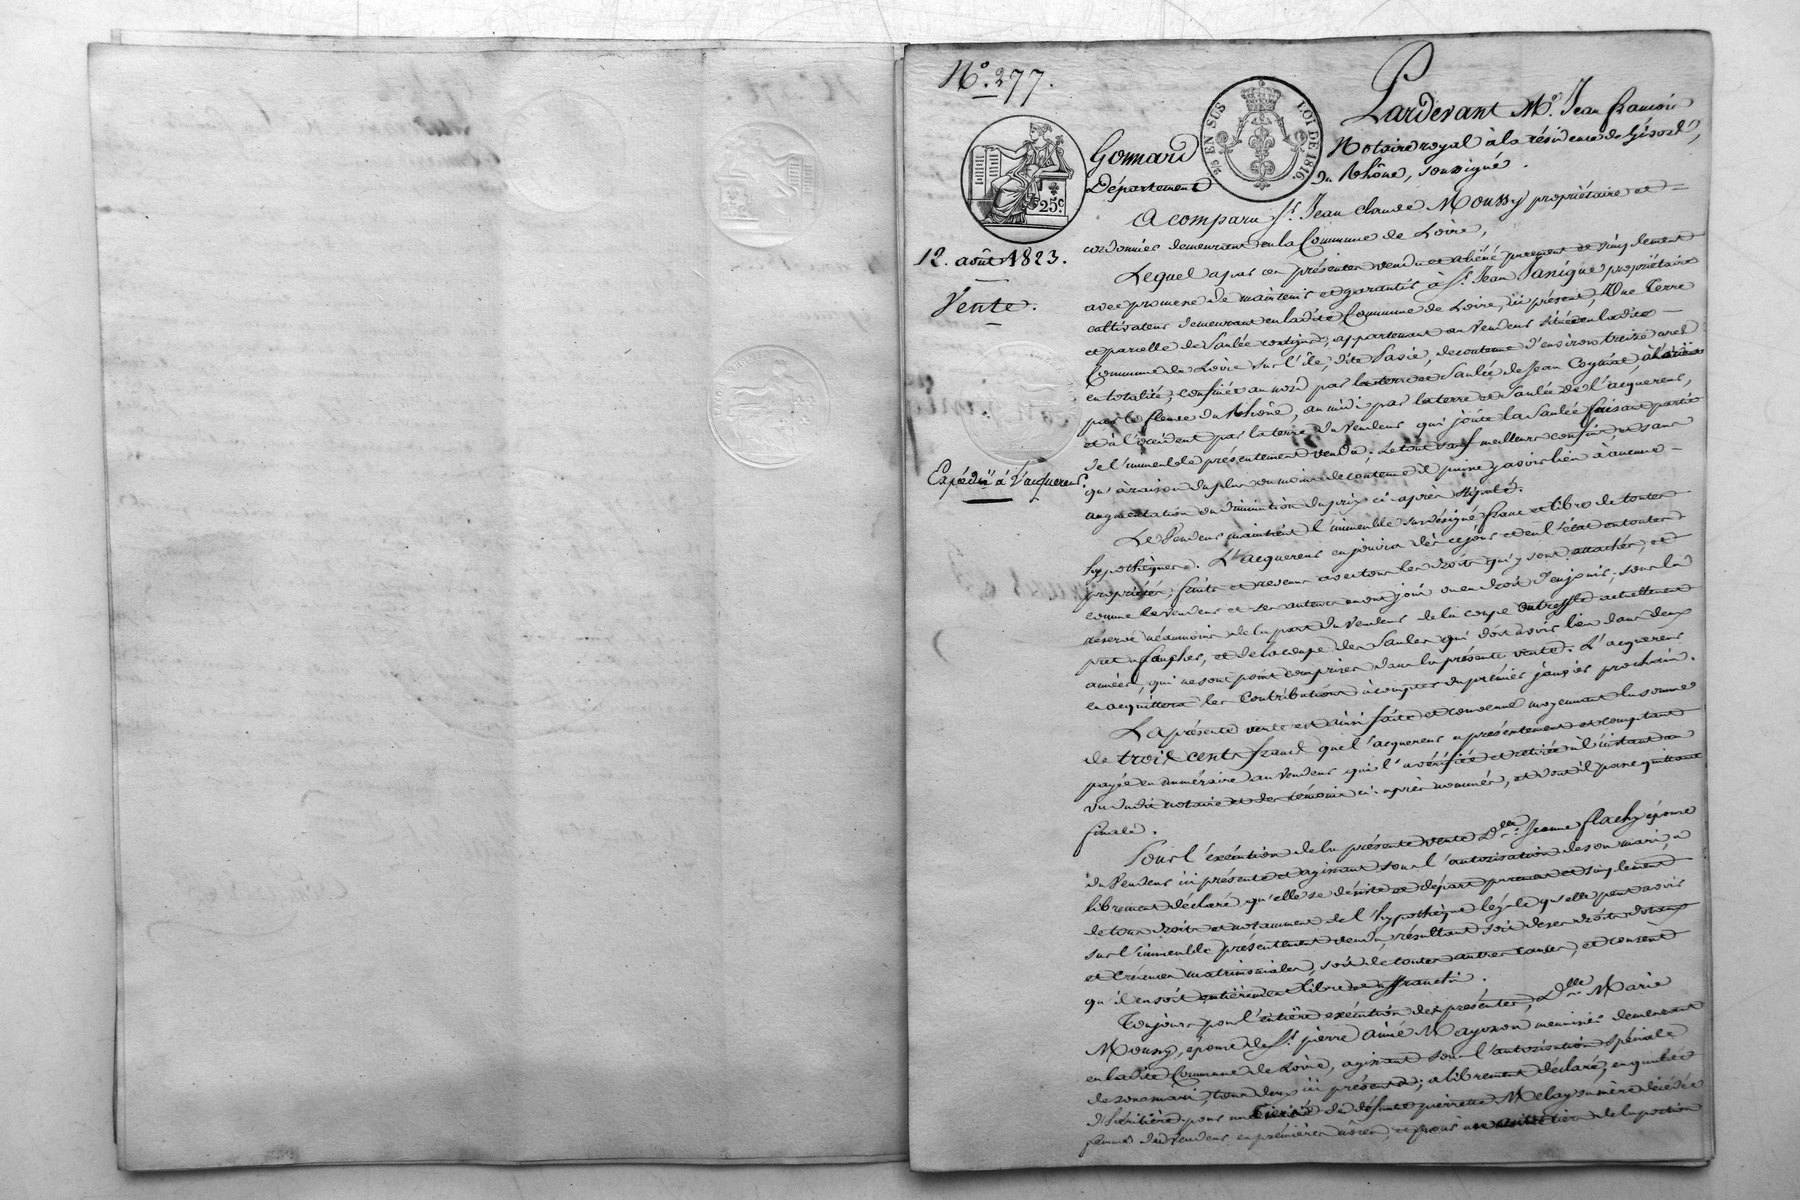 N.° 277.
Pardevant M.e Jean françois
Gomard
Notaire royal à la résidence de Givors,
Département
du Rhône, soussigné.
25 EN SUS
LOI DE 1816.
25.c
12. août 1823.
Vente.
Expédié à l'acquereur.
A comparu S.r Jean Claude Moussy propriétaire et
cordonnier demeurant en la Commune de Loire,
Lequel a par ces présentes vendu et aliéné purement et simplement
avec promesse de maintenir et garantir à S.r Jean Janigue propriétaire
cultivateur demeurant en ladite Commune de Loire, ici présent, Une Terre
et parcelle de Saulée contigue, appartenant au Vendeur située en ladite
Commune de Loire sur l'île, dite Pavie, de contenue d'environ treize ares
en totalité, confinée au nord par la terre et Saulée de Jean Cognat, à l'orient
par le fleuve du Rhône, au midi par la terre et Saulée de l'acquereur,
et à l'occident par la terre du Vendeur qui joute la Saulée faisant partie
de l'immeuble présentement vendu; Le tout sauf meilleurs confins, et sans
qu'à raison du plus ou moins de contenue il puisse y avoir lieu à aucune
augmentation ou diminution du prix ci-après stipulé.
Le Vendeur maintient l'immeuble susdésigné franc et libre de toutes
hypothèques. L'acquereur en jouira dès ce jour et en l'état en toutes
propriétés, fruits et revenus avec tous les droits qui y sont attachés, et
comme le Vendeur et ses auteurs en ont joui ou eu droit d'en jouir; sous la
réserve néanmoins de la part du Vendeur de la coupe du treffle actuellement
pret à faucher, et de la coupe des Saules qui doit avoir lieu dans deux
années, qui ne sont point comprises dans la présente vente. L'acquereur
en acquittera les Contributions à compter du premier janvier prochain.
La présente vente est ainsi faite et convenue moyennant la somme
de trois cents francs que l'acquereur a présentement et comptant
payée en numéraire au Vendeur qui l'a vérifiée et retirée à l'instant au
vu dudit notaire et des témoins ci-après nommés, et dont il passe quittance
finale.
Pour l'exécution de la présente vente D.lle Jeanne flachy épouse
du Vendeur ici présente et agissant sous l'autorisation de son mari, a
librement déclaré qu'elle se désiste et départ purement et simplement
de tous droits et notamment de l'hypothèque légale qu'elle peut avoir
sur l'immeuble présentement vendu, résultant soit de ses droits dotaux
et Créances matrimoniales, soit de toutes autres causes, et consent
qu'il en soit entièrement libre et affranchi.
Toujours pour l'entière exécution des présentes, D.lle Marie
Moussy, épouse de S.r pierre Aimé Mayosson menuisier demeurant
en ladite Commune de Loire, agissant sous l'autorisation spéciale
de son mari, tous deux ici présents; a librement déclaré, en qualité
d'héritière pour un tiers de défunte pierrette Melay sa mère décédée
femme du Vendeur en premières nôces, et sous de la portion